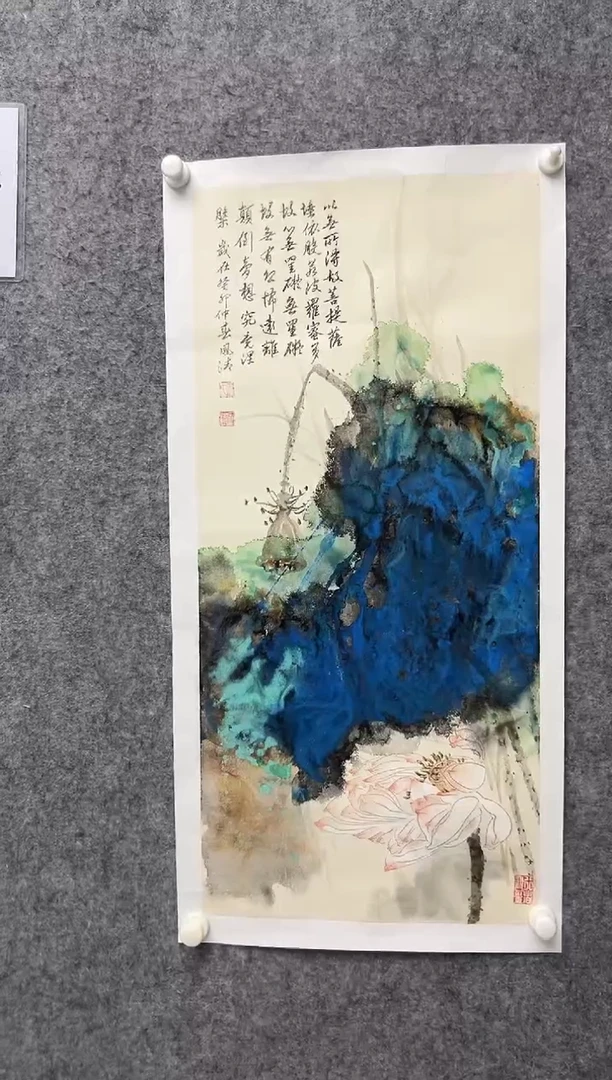 以無所得故菩提薩
埵依般若波羅密多
故心無罣礙無罣礙
故無有恐怖遠離
顛倒夢想究竟涅
槃 歲在癸卯仲春